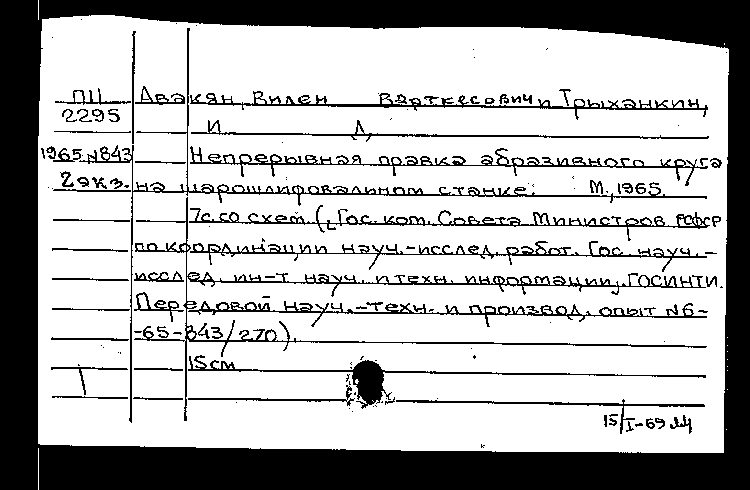 ПЦ Авакян, ВиленВарткесович и Трыханкин,
2295
И Л,
1965 N843 Непрерывная правка абразивного круга
2 экз. на шарошлифовальном станке. М., 1965.
7с. со схем. (Гос. ком. Совета Министров РСФСР
по координации науч.-исслед. работ. Гос. науч.-
исслед. ин-т науч. и техн. информации, ГОСИНТИ.
Передовой науч.-техн. и производ. опыт N6-
-65-843/270).
15см
15/I-69